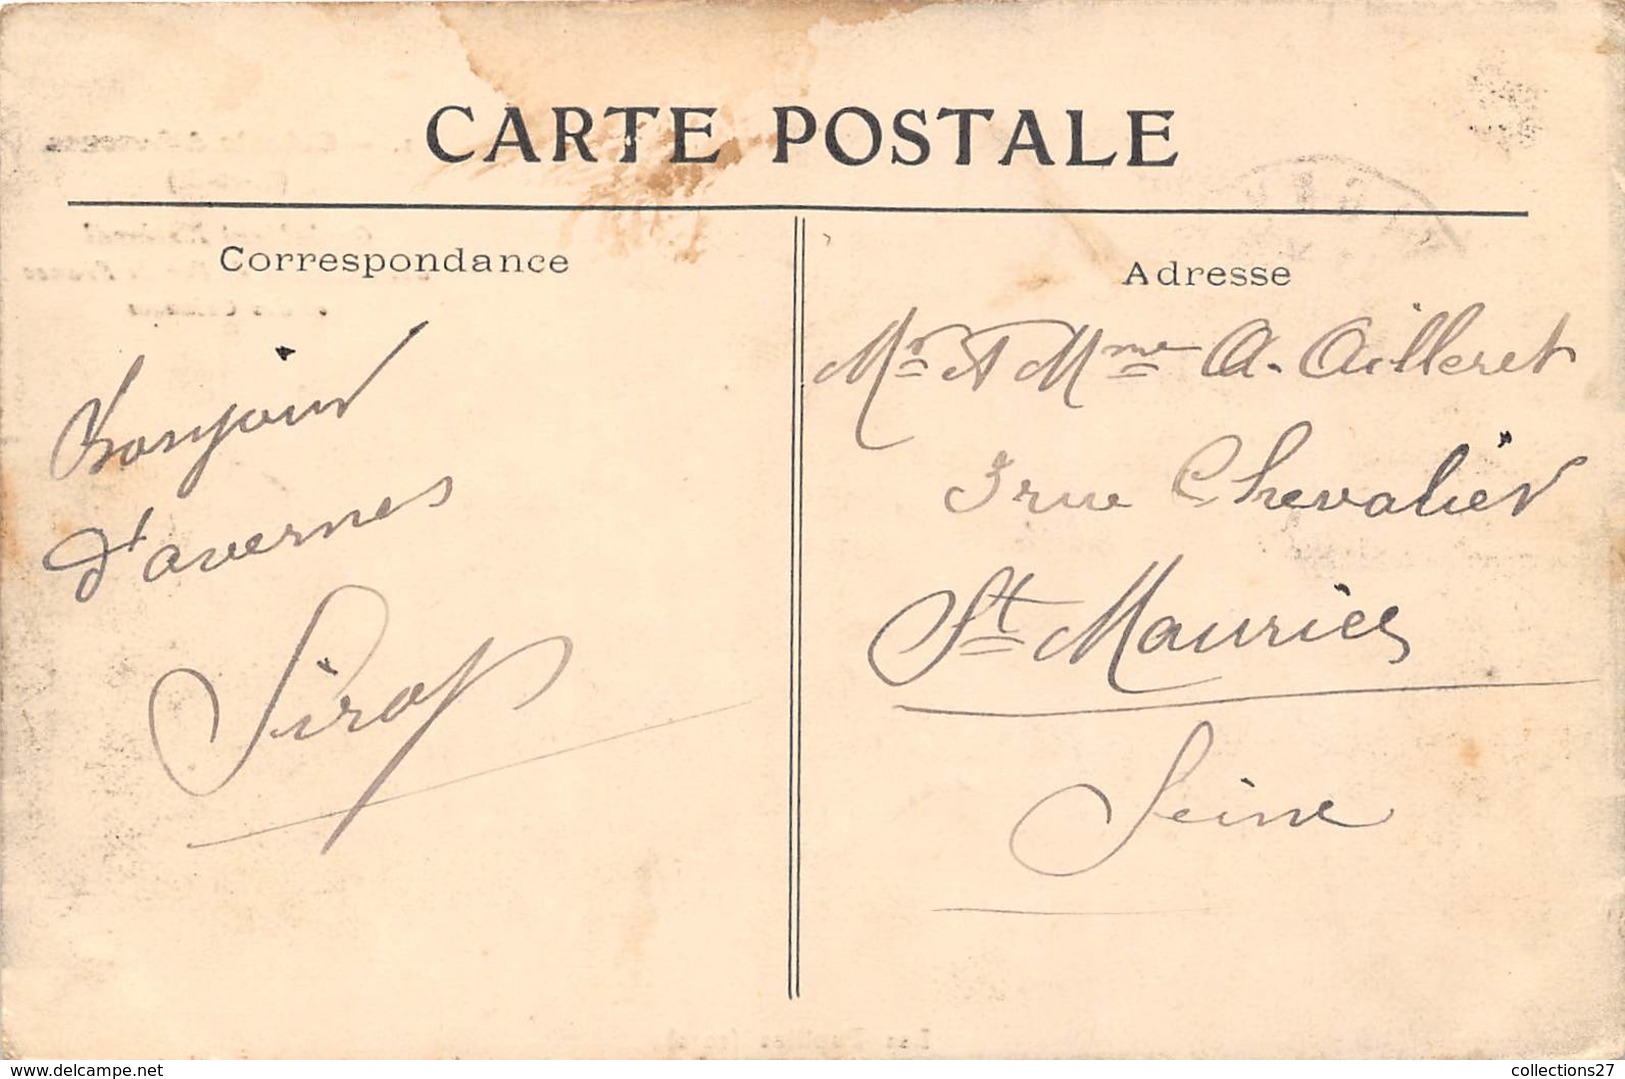 CARTE POSTALE
Correspondance
Bonjour
d'avernes
Sirop
Adresse
Mr & Mme A. Ailleret
3 rue Chevalier
St Maurice
Seine
www.delcampe.net
collections27